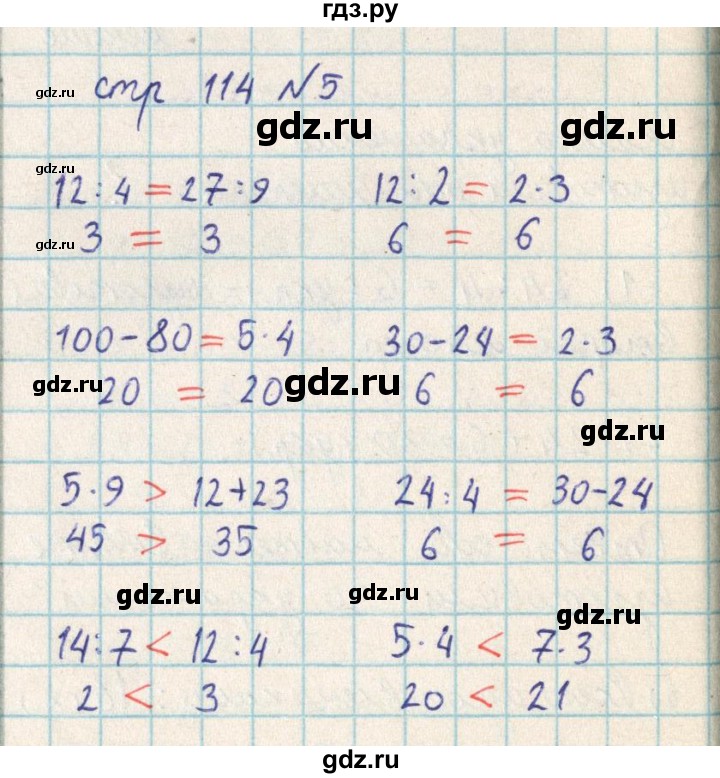 гдз.ру
gdz.ru
стр 114 №5
gdz.ru gdz.ru
gdz.ru
12:4=27:9 12:2=2·3
gdz.ru
3 = 3 6 = 6
100-80=5·4 30-24=2·3
gdz.ru gdz.ru
20 = 20 6 = 6
gdz.ru
5·9 > 12+23 24:4 = 30-24
45 > 35 6 = 6
gdz.ru gdz.ru
gdz.ru
14:7 < 12:4 5·4 < 7·3
2 < 3 20 < 21
gdz.ru